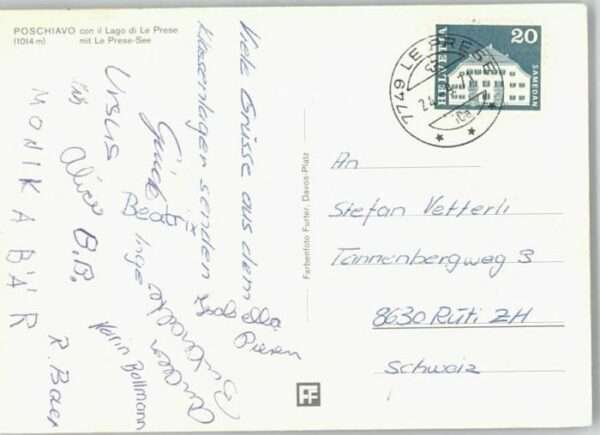 POSCHIAVO con il Lago di Le Prese
(1014 m) mit Le Prese-See
Viele Grüsse aus dem
Klassenlager senden
Guido
Beatrix
Inge
Isabella
Pieren
Ursus
Alice B.B.
Karin Bollmann
MONIKA BÄR
R. Baer
Farbenfoto Furter, Davos-Platz
7749 LE PRESE
HELVETIA
20
SAMEDAN
An
Stefan Vetterli
Tannenbergweg 3
8630 Rüti ZH
Schweiz